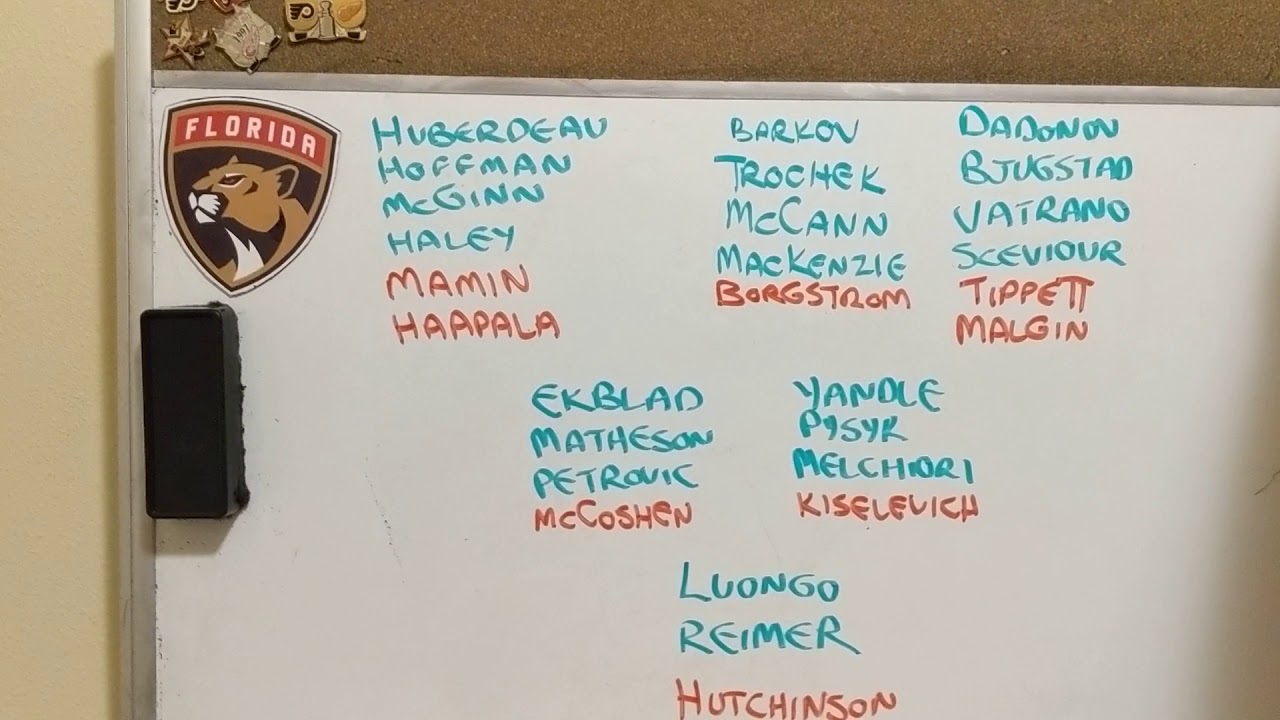 FLORIDA
HUBERDEAU BARKOV DADONOV
HOFFMAN TROCHEK BJUGSTAD
McGINN McCANN VATRANO
HALEY MACKENZIE SCEVIOUR
MAMIN BORGSTROM TIPPETT
HAAPALA MALGIN
EKBLAD YANDLE
MATHESON PYSYK
PETROVIC MELCHIORI
McCOSHEN KISELEVICH
LUONGO
REIMER
HUTCHINSON